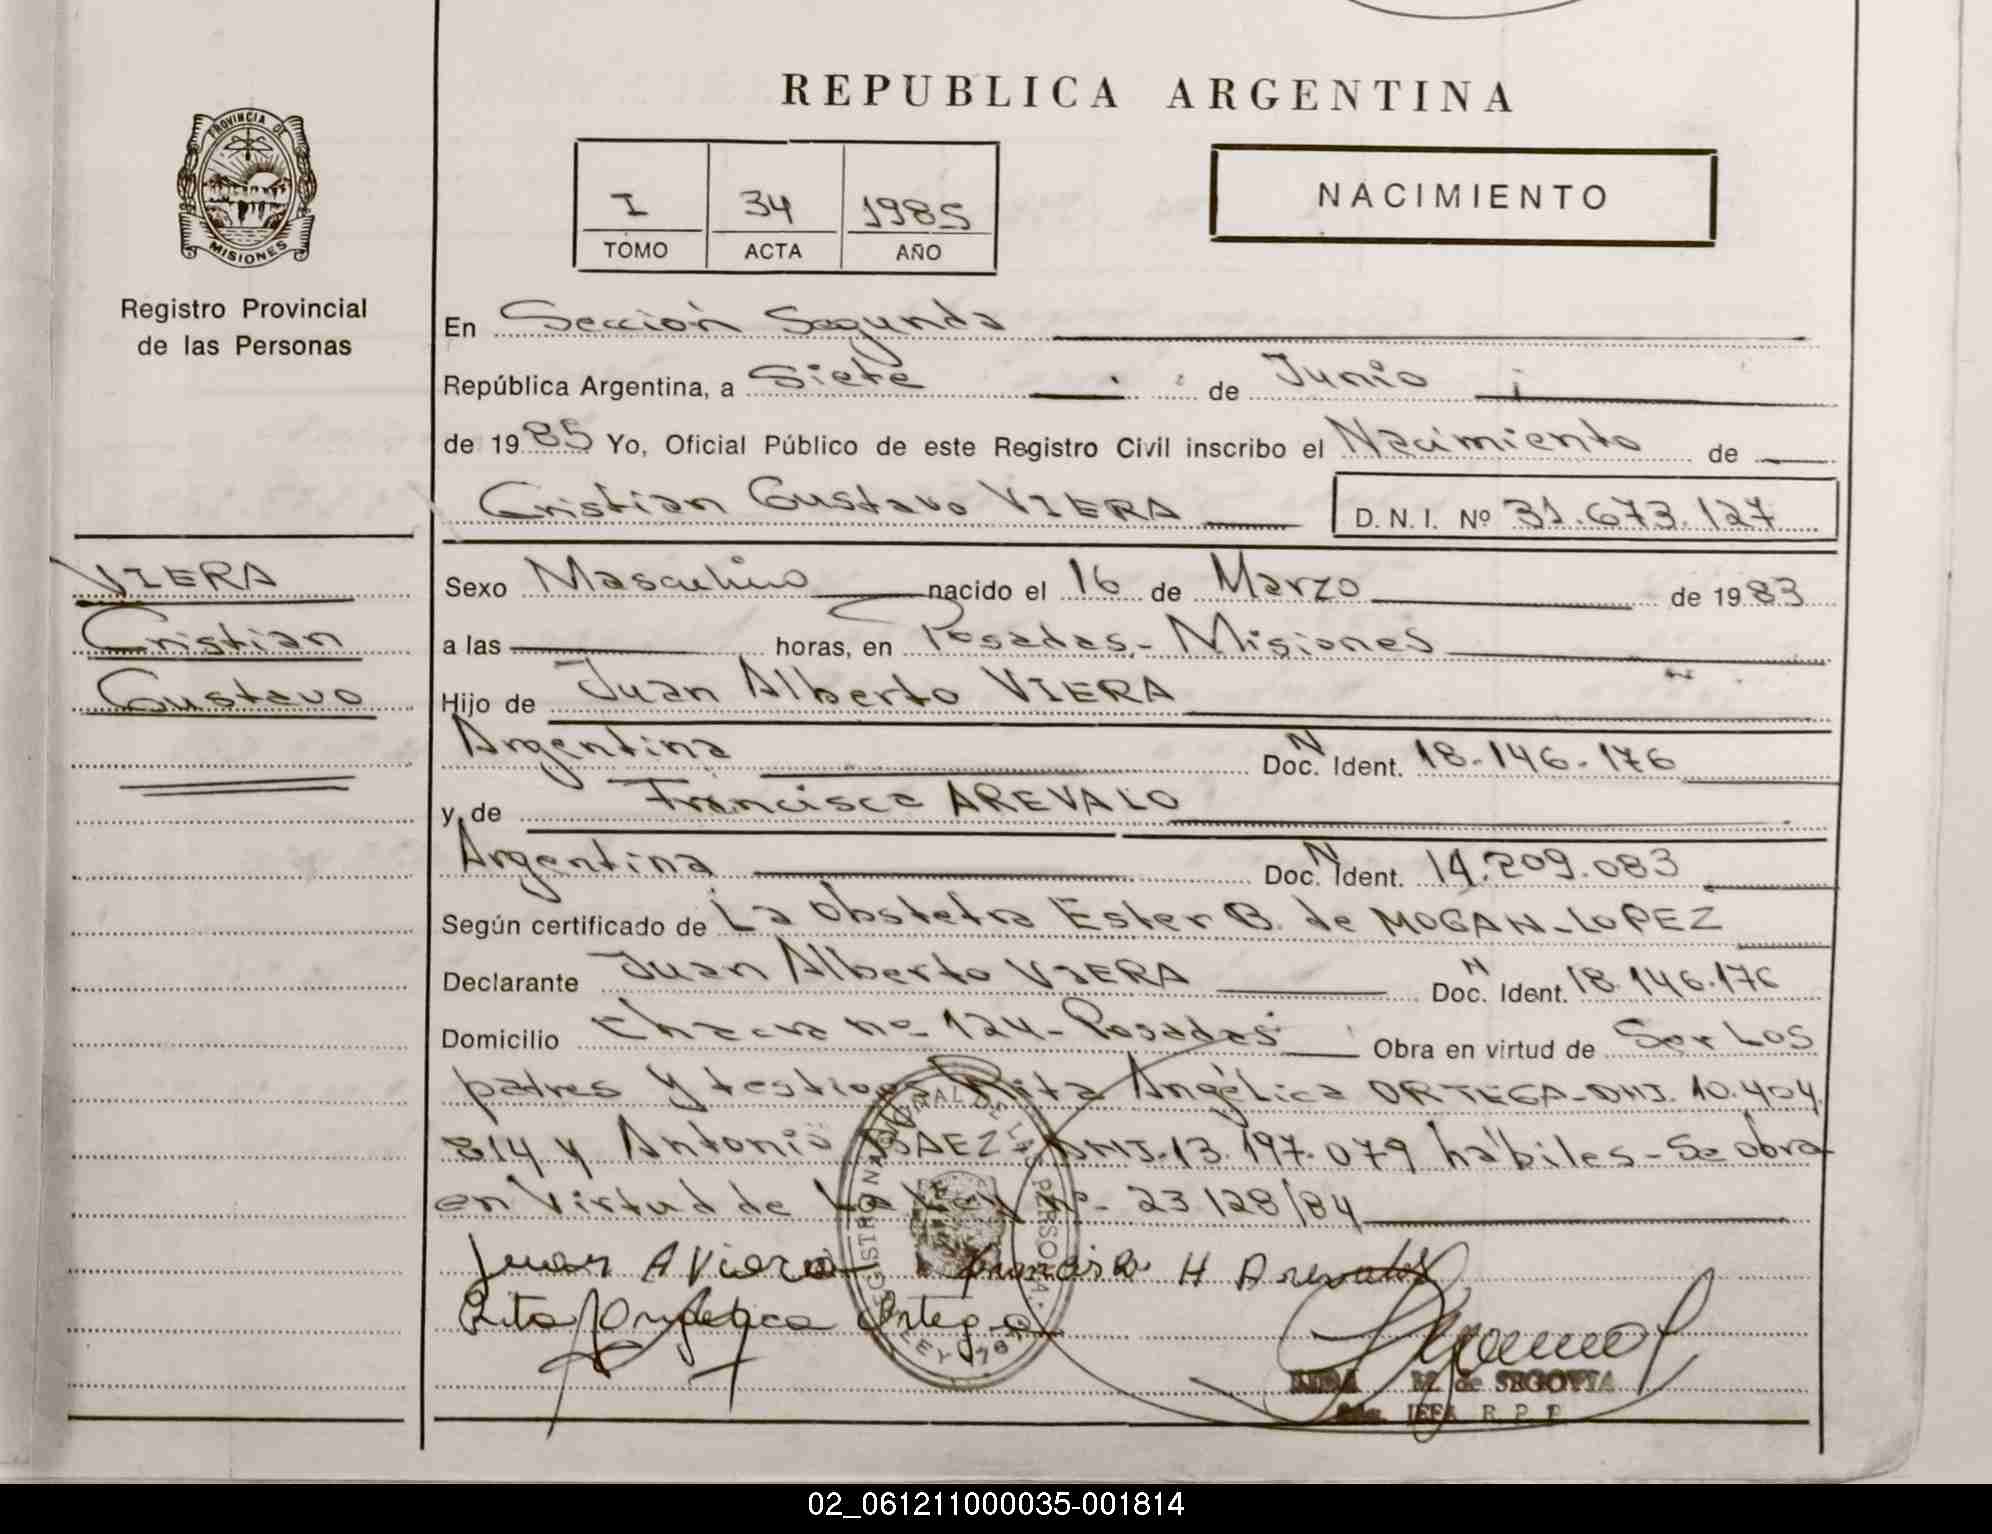 REPUBLICA ARGENTINA
PROVINCIA DE
MISIONES
Registro Provincial
de las Personas
I 34 1985
TOMO ACTA AÑO
NACIMIENTO
En Sección Segunda
República Argentina, a Siete de Junio
de 1985 Yo, Oficial Público de este Registro Civil inscribo el Nacimiento de
Cristian Gustavo VIERA D. N. I. Nº 31.673.127
VIERA
Cristian
Gustavo
Sexo Masculino nacido el 16 de Marzo de 1983
a las horas, en Posadas.- Misiones
Hijo de Juan Alberto VIERA
Argentina Doc. N Ident. 18.146.176
y de Francisca AREVALO
Argentina Doc. N Ident. 14.209.083
Según certificado de La Obstetra Ester B. de MOGAN-LOPEZ
Declarante Juan Alberto VIERA Doc. N Ident. 18.146.176
Domicilio Chacra nº 124- Posadas Obra en virtud de Ser Los
padres y testigos Rita Angélica ORTEGA-DNI. 10.404.
814 y Antonio BAEZ DNI.13.197.079 hábiles- Se obra
en Virtud de La Ley nº- 23128/84
Juan A Viera H Arevalo
Rita Angelica Ortega
M. de SEGOVIA
JEFA R. P. P.
02_061211000035-001814